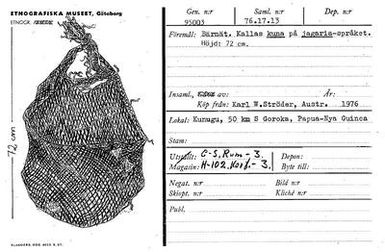 ETNOGRAFISKA MUSEET, Göteborg
ETNOGR.
72 cm
Gen. n:r
95003
Saml. n:r
76.17.13
Dep. n:r
Föremål: Bärnät. Kallas kuna på jagaria-språket.
Höjd: 72 cm.
Insaml., av:
År:
Köp från: Karl W.Ströder, Austr. 1976
Lokal: Kunugu, 50 km S Goroka, Papua-Nya Guinea
Stam:
Utställt: C-S. Rum - 3.
Depon:
Magasin: H-102. - 3.
Byte till:
Negat. n:r
Bild n:r
Skiopt. n:r
Kliché n:r
Publ.